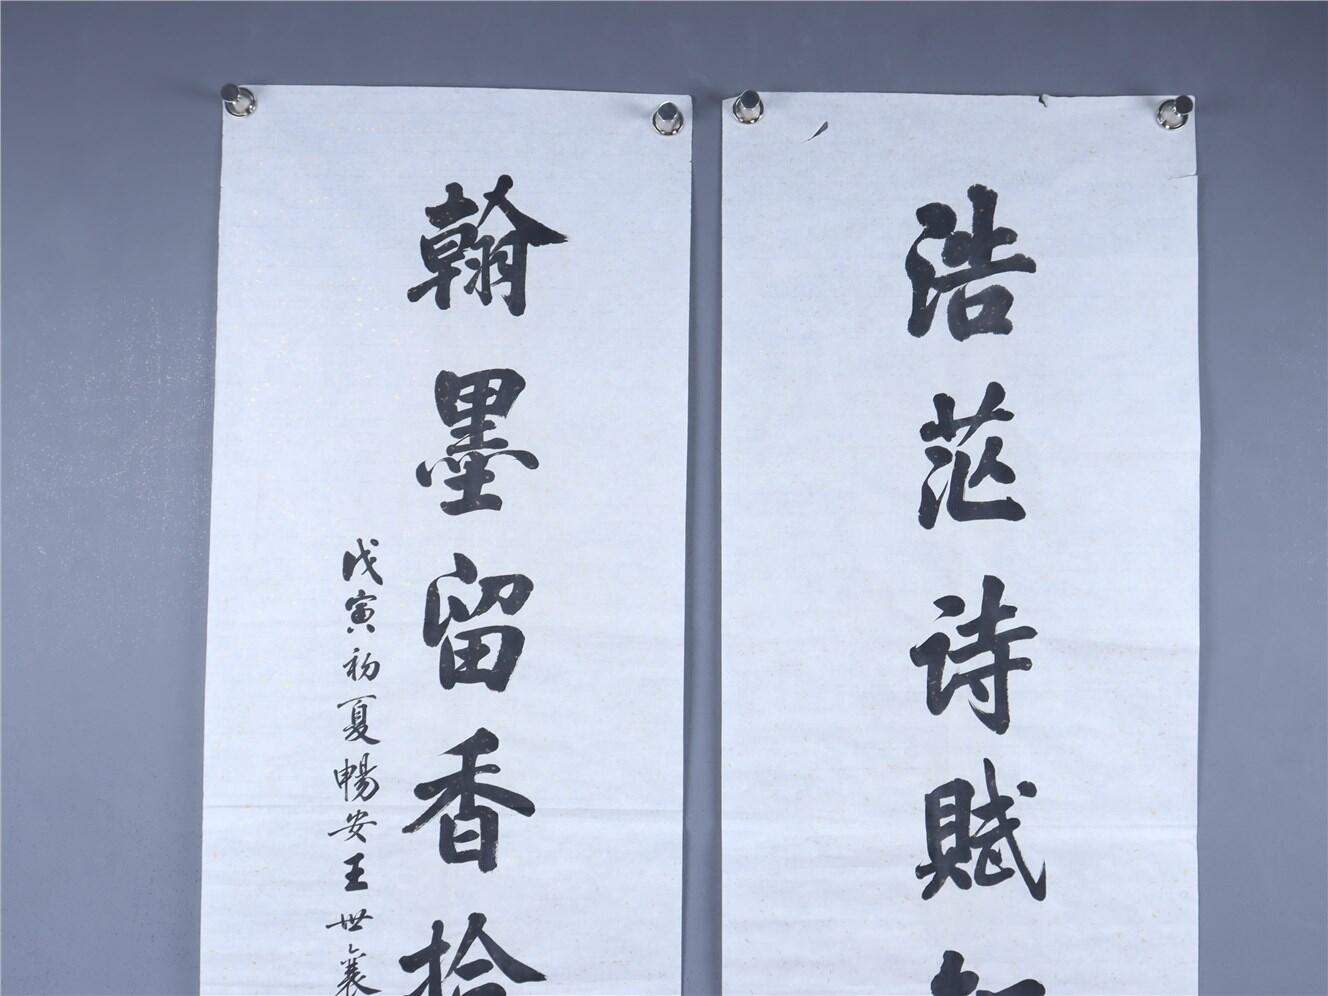 浩茫诗赋
翰墨留香拾
戊寅初夏暢安王世襄